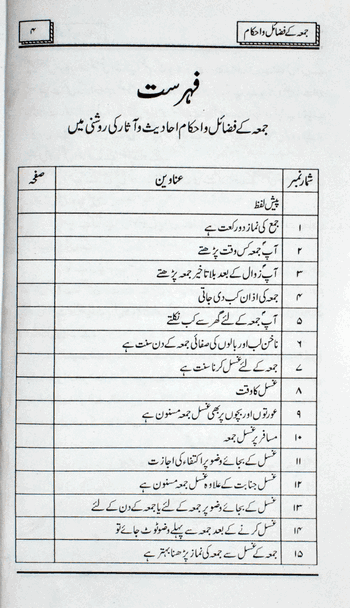 جمعہ کے فضائل و احکام
۴
فہرست
جمعہ کے فضائل و احکام احادیث و آثار کی روشنی میں
شمار نمبر عناوین صفحہ
پیش لفظ
۱ جمع کی نماز دو رکعت ہے
۲ آپؐ جمعہ کس وقت پڑھتے
۳ آپؐ زوال کے بعد بلا تاخیر جمعہ پڑھتے
۴ جمعہ کی اذان کب دی جاتی
۵ آپؐ جمعہ کے لئے گھر سے کب نکلتے
۶ ناخن لب اور بالوں کی صفائی جمعہ کے دن سنت ہے
۷ جمعہ کے لئے غسل کرنا سنت ہے
۸ غسل کا وقت
۹ عورتوں اور بچوں پر بھی غسل جمعہ مسنون ہے
۱۰ مسافر پر غسل جمعہ
۱۱ غسل کے بجائے وضو پر اکتفاء کی اجازت
۱۲ غسل جنابت کے علاوہ غسل جمعہ مسنون ہے
۱۳ غسل کے بجائے وضو پر جمعہ کے لئے یا جمعہ کے دن کے لئے
۱۴ غسل کرنے کے بعد جمعہ سے پہلے وضو ٹوٹ جائے تو
۱۵ جمعہ کے غسل سے جمعہ کی نماز پڑھنا بہتر ہے